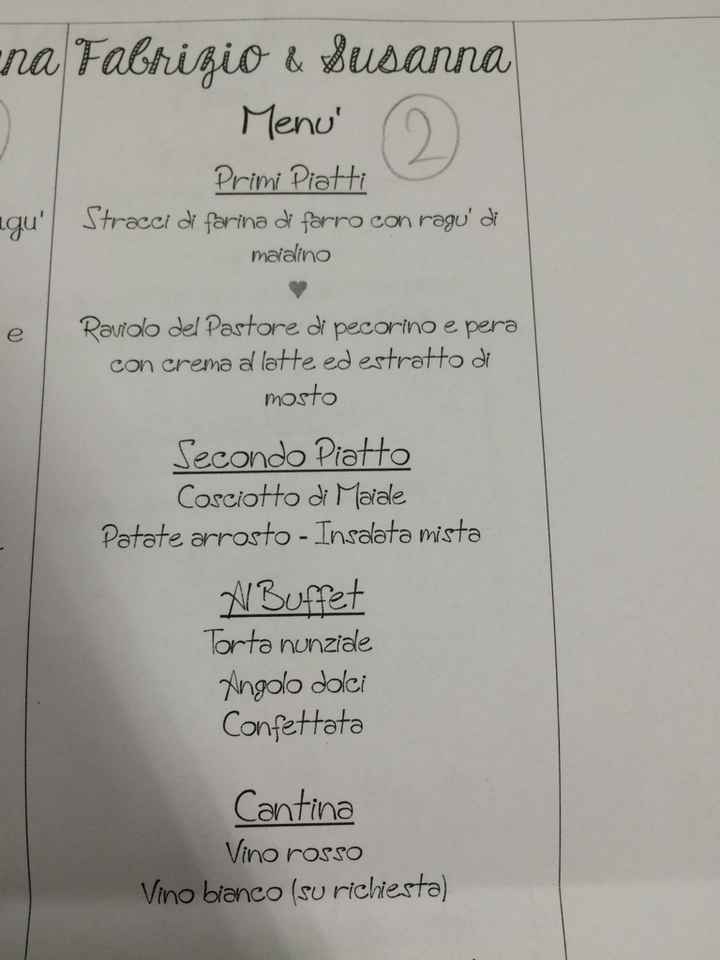 na
Fabrizio & Susanna
Menu'
2
Primi Piatti
Stracci di farina di farro con ragu' di
maialino
Raviolo del Pastore di pecorino e pera
con crema al latte ed estratto di
mosto
Secondo Piatto
Cosciotto di Maiale
Patate arrosto - Insalata mista
Al Buffet
Torta nunziale
Angolo dolci
Confettata
Cantina
Vino rosso
Vino bianco (su richiesta)
agu'
e